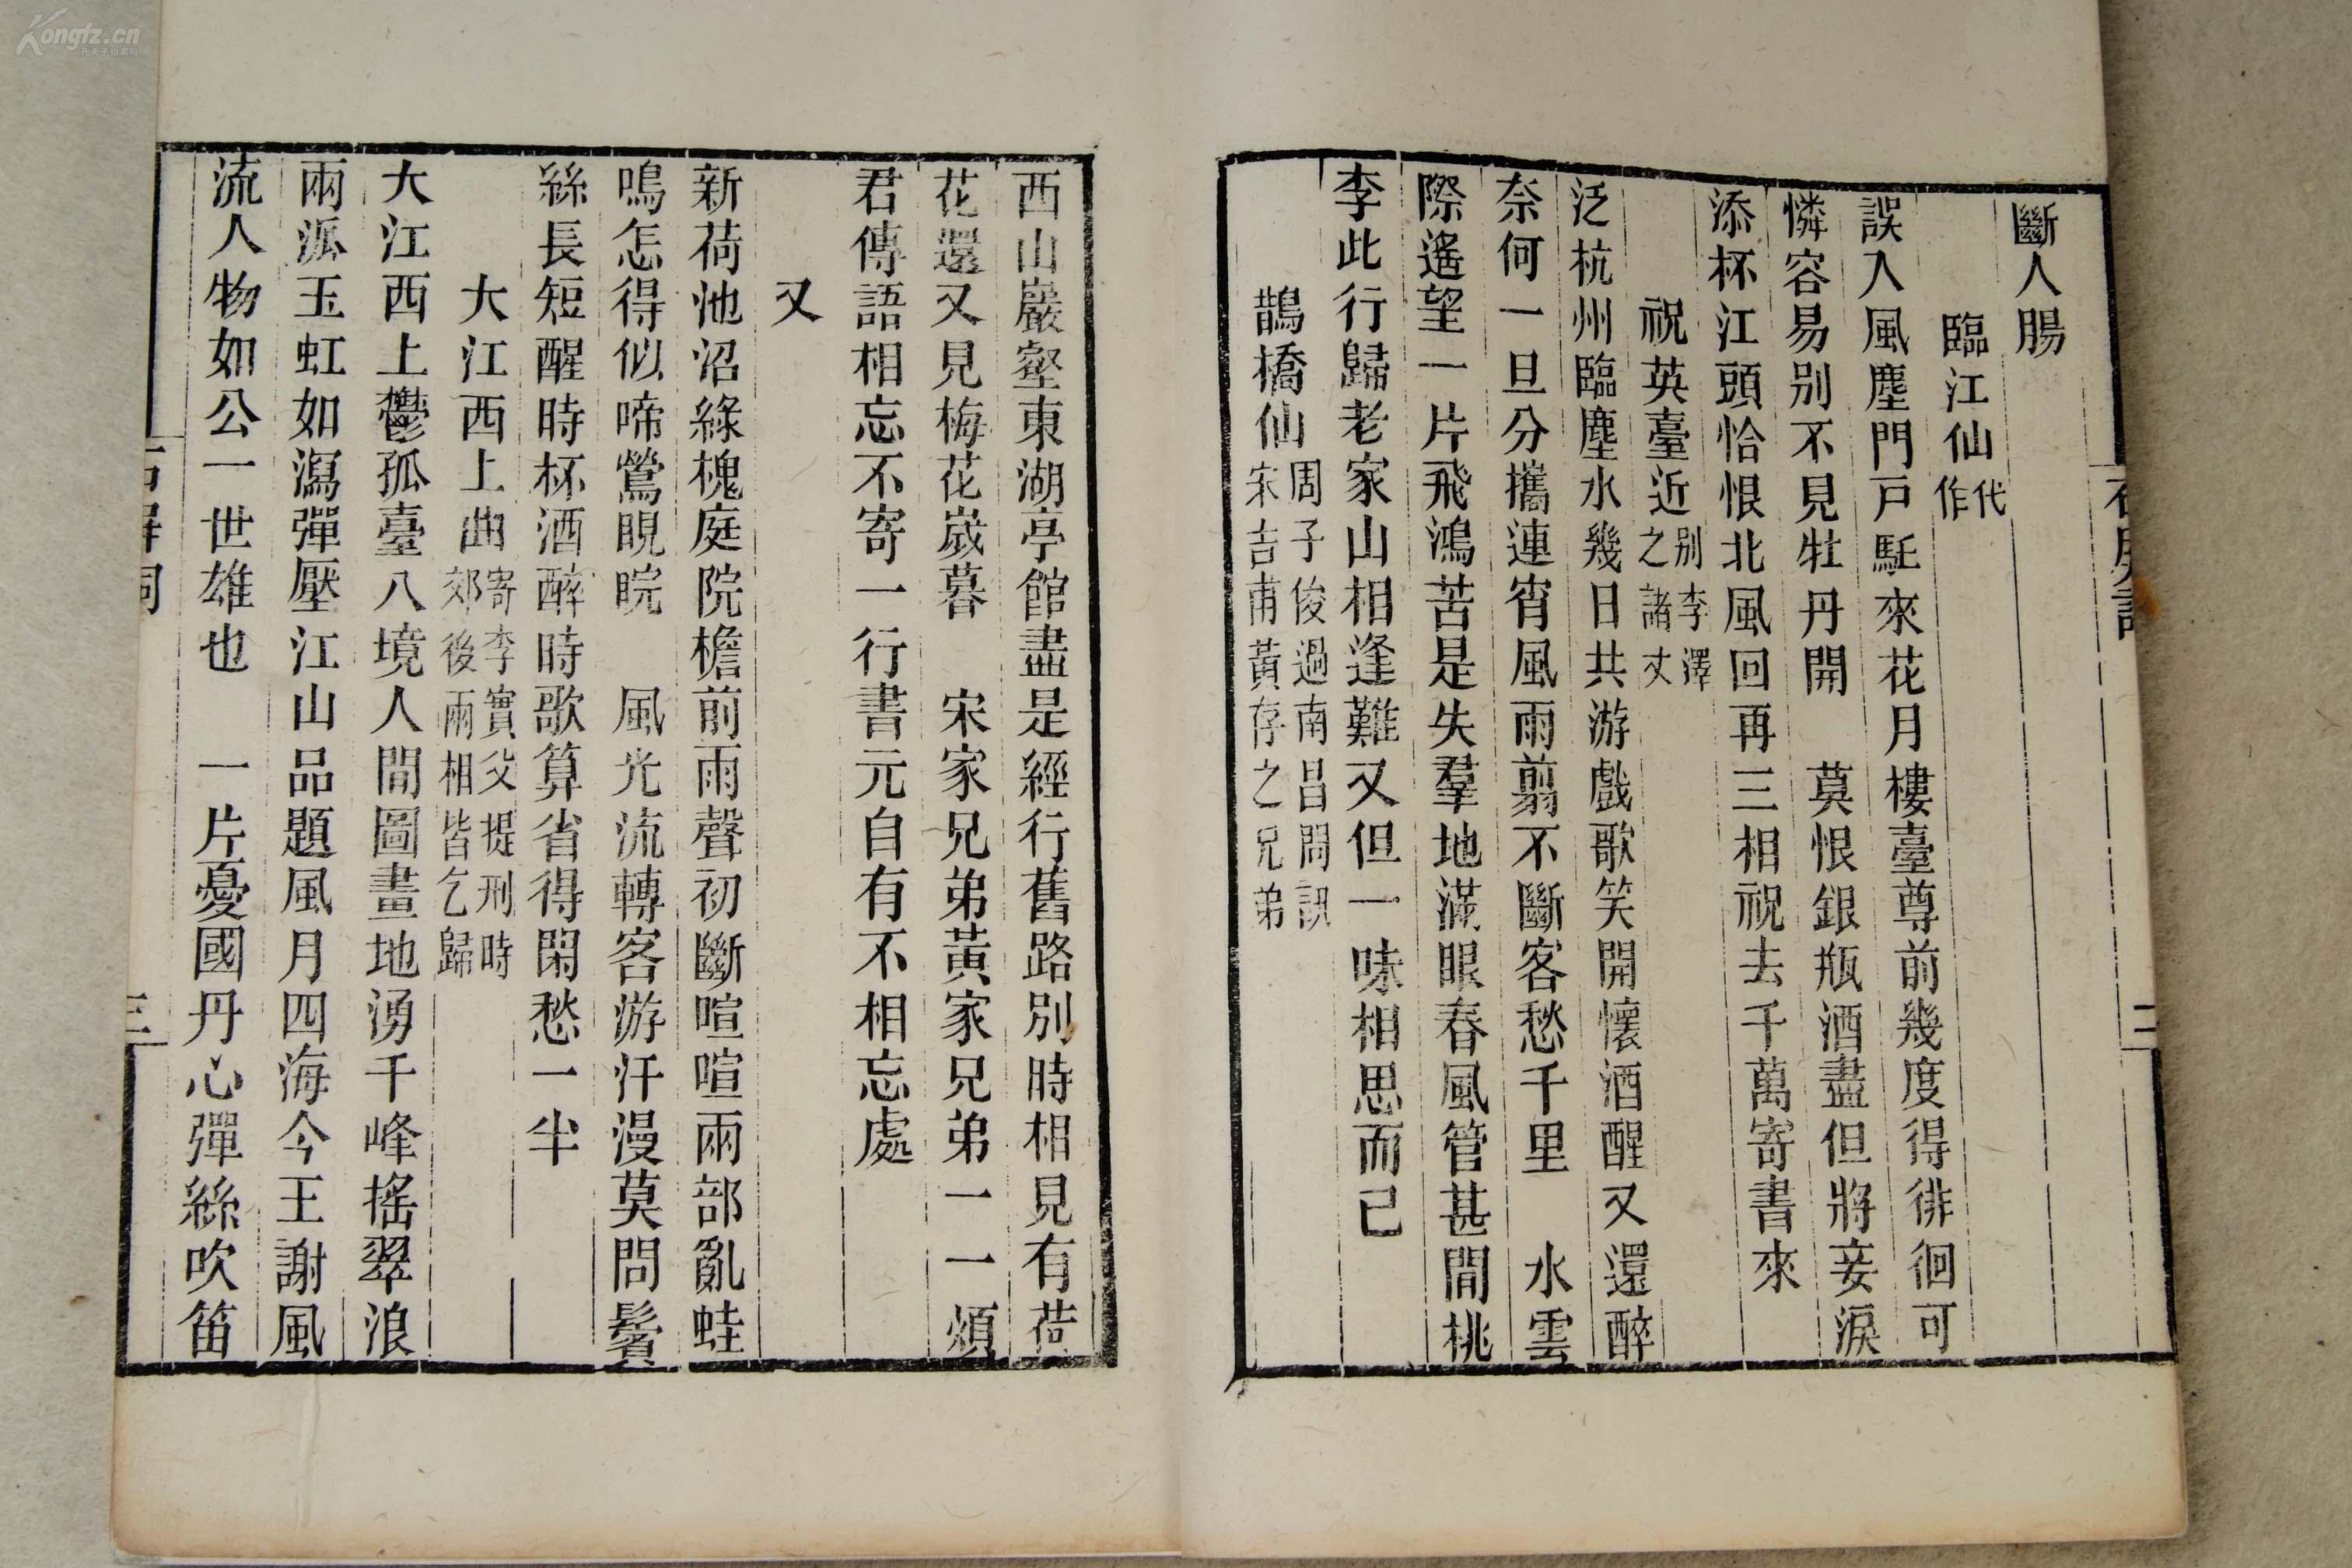 斷人腸
臨江仙代作
誤入風塵門戸駈來花月樓臺尊前幾度得徘徊可
憐容易別不見牡丹開　莫恨銀瓶酒盡但將妾淚
添杯江頭恰恨北風回再三相祝去千萬寄書來
祝英臺近別李澤之諸丈
泛杭州臨塵水幾日共游戲歌笑開懷酒醒又還醉
奈何一旦分攜連宵風雨剪不斷客愁千里　水雲
際遙望一片飛鴻苦是失羣地滿眼春風管甚閒桃
李此行歸老家山相逢難又但一味相思而已
鵲橋仙周子俊過南昌問訊宋吉甫黃存之兄弟
西山巖壑東湖亭館盡是經行舊路別時相見有荷
花還又見梅花歲暮　宋家兄弟黃家兄弟一一煩
君傳語相忘不寄一行書元自有不相忘處
又
新荷池沼綠槐庭院檐前雨聲初斷喧喧兩部亂蛙
鳴怎得似啼鶯睍睆　風光流轉客游汗漫莫問鬢
絲長短醒時杯酒醉時歌算省得閑愁一半
大江西上曲寄李實父提刑時郊後兩相皆乞歸
大江西上鬱孤臺八境人間圖畫地湧千峰搖翠浪
兩派玉虹如瀉彈壓江山品題風月四海今王謝風
流人物如公一世雄也　一片憂國丹心彈絲吹笛
石屏詞
二
石屏詞
三
Kongfz.cn